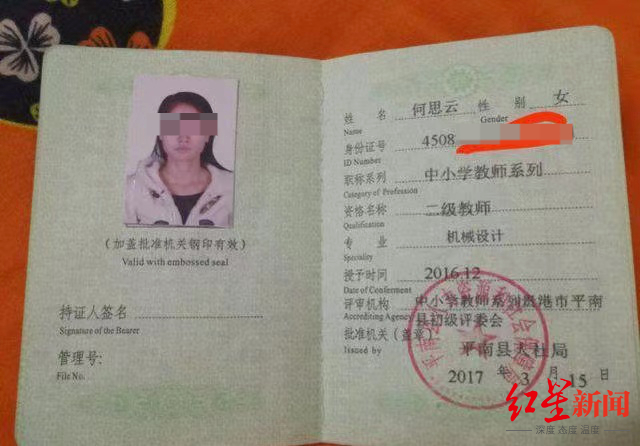 (加盖批准机关钢印有效)
Valid with embossed seal
持证人签名
Signature of the Bearer
管理号:
File No.
姓 名 何思云 性 别 女
Name Gender
身份证号 4508
ID Number
职称系列 中小学教师系列
Category of Profession
资格名称 二级教师
Qualification
专 业 机械设计
Speciality
授予时间 2016.12
Date of Conferment
评审机构 中小学教师系列贵港市平南
Accrediting Agency 县初级评委会
批准机关(盖章)
Issued by 平南县人社局
2017 年 3 月 15 日
红星新闻
深度 态度 温度